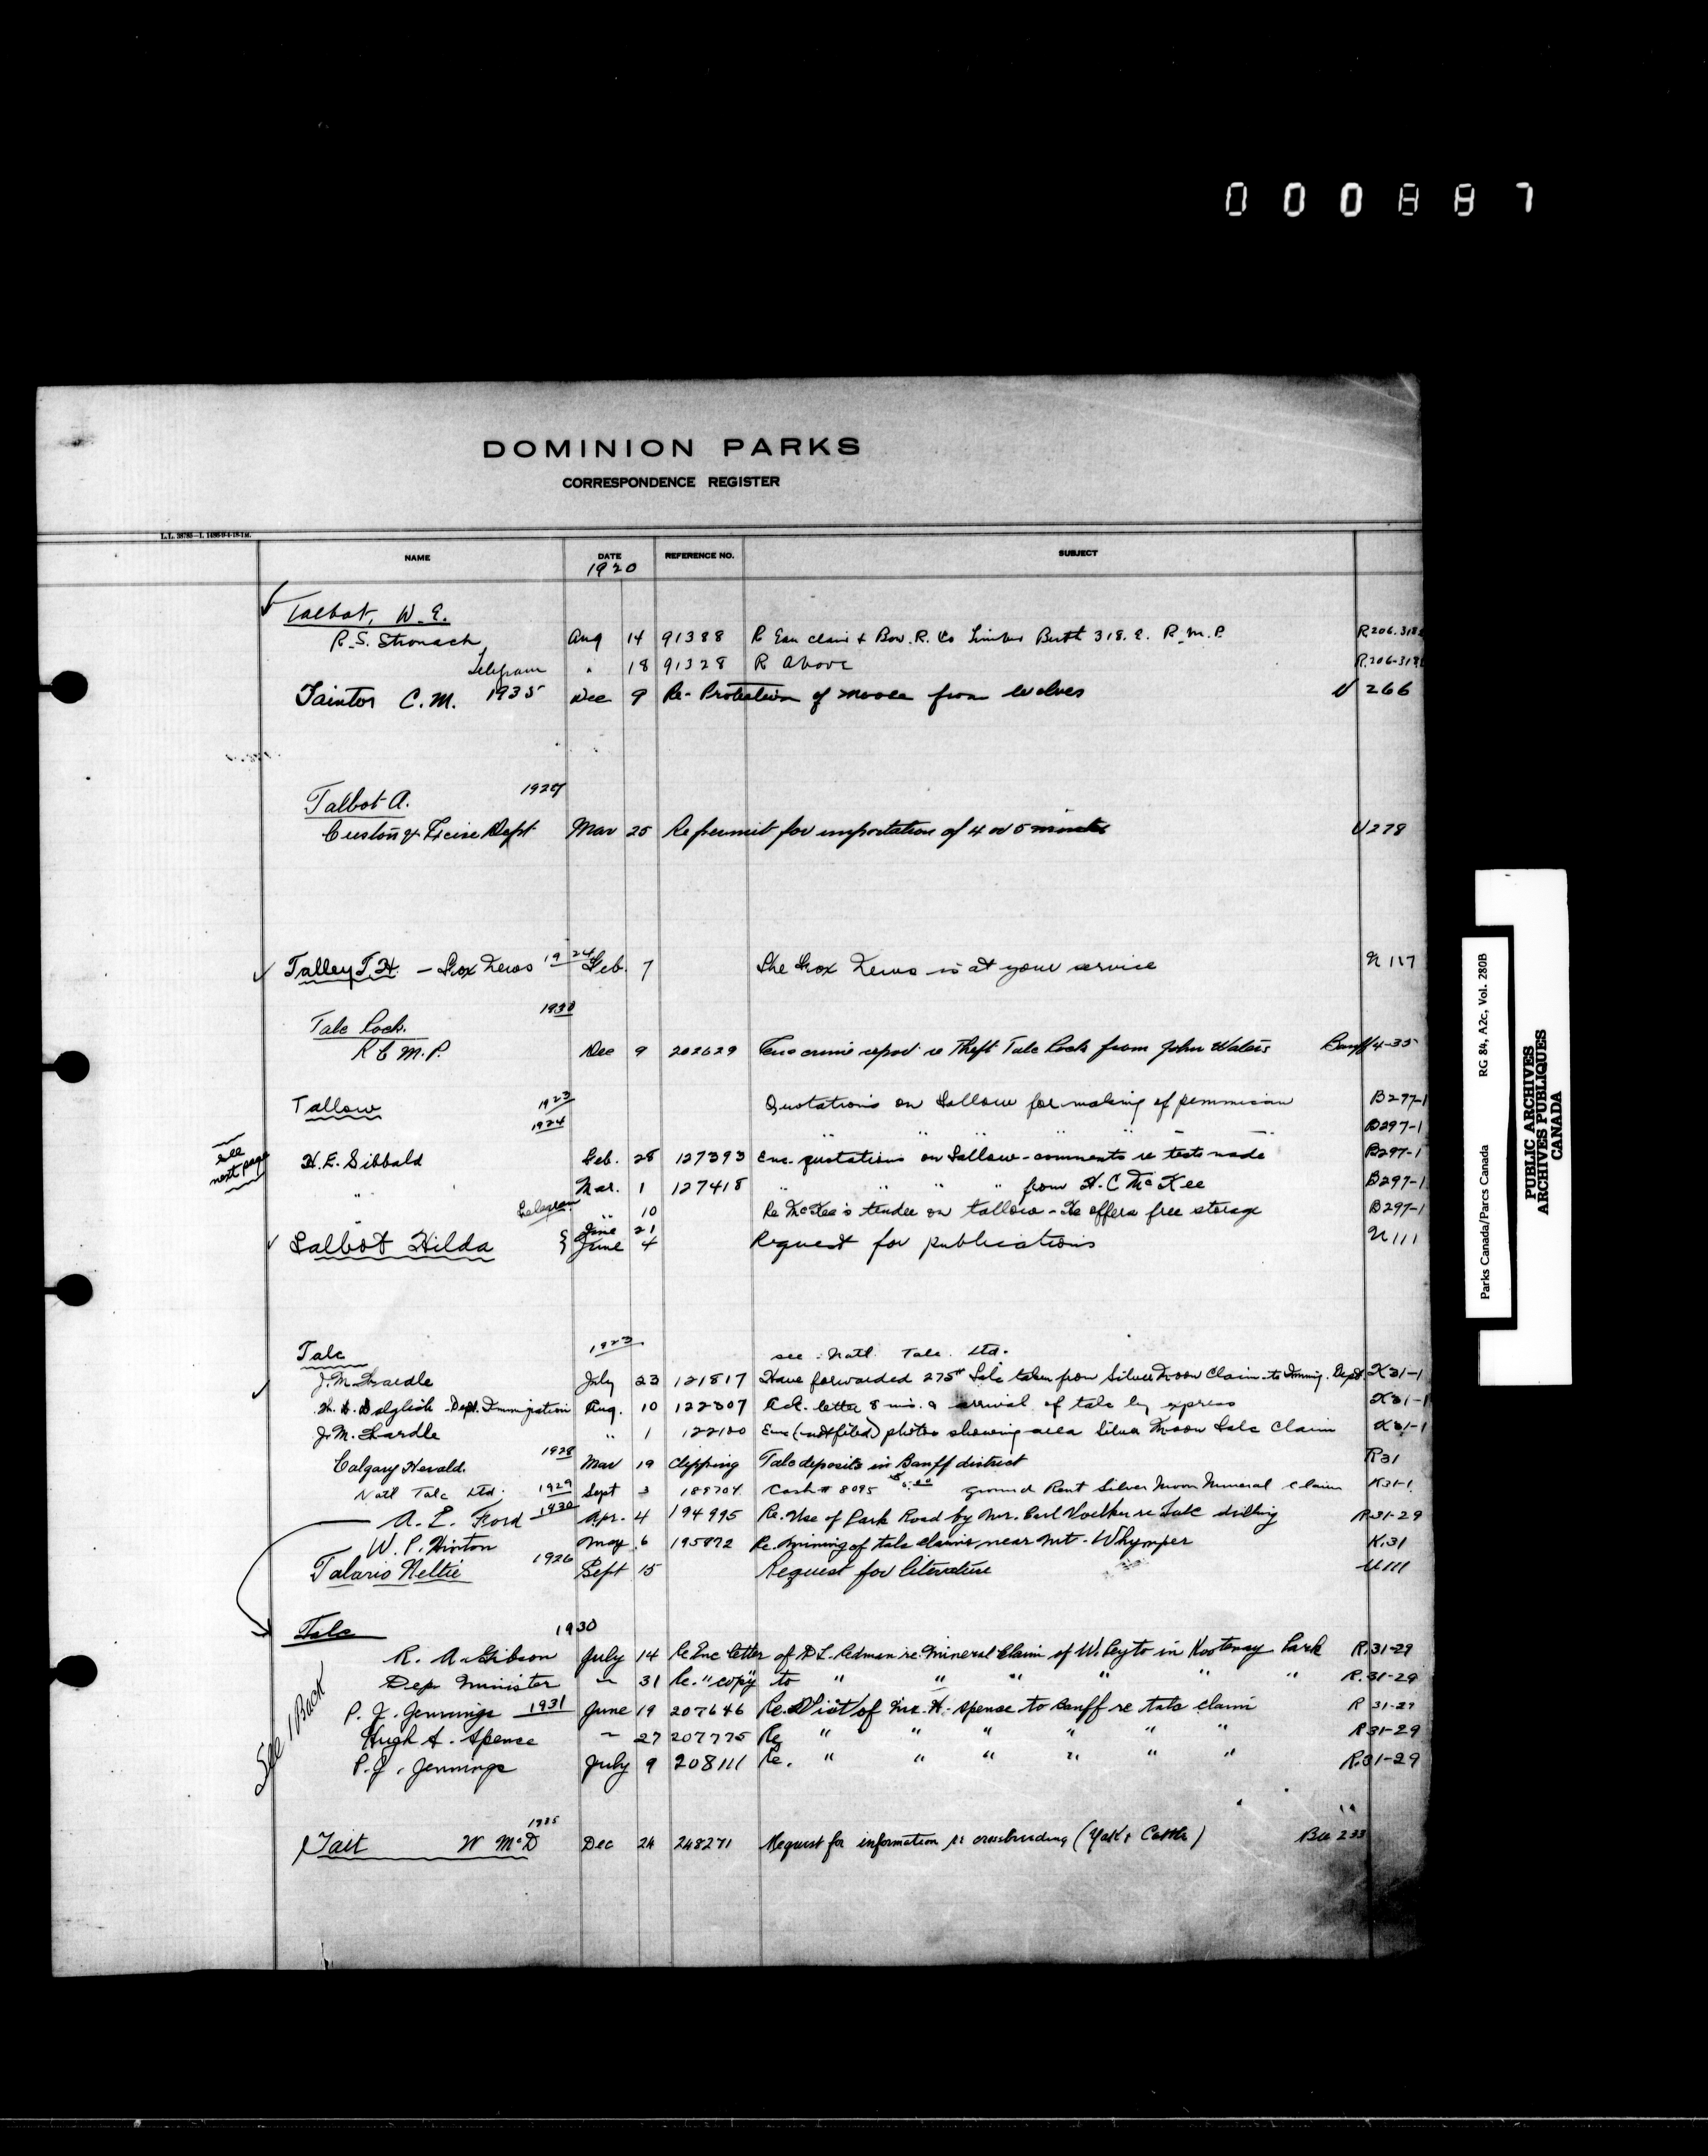 000887
DOMINION PARKS
CORRESPONDENCE REGISTER
NAME DATE REFERENCE NO. SUBJECT
1920
Talbot, W. E.
R. S. Stronach Aug 14 91388 R Eau Claire & Bow. R. Co Timber Berth 318. E. R.M.P. R206.318
Telegram " 18 91328 R Above R.206-318
Taintor C. M. 1935 Dec 9 Re- Protection of moose from wolves U 266
Talbot A.
Custom & Excise Dept Mar 25 Re permit for importation of 4 or 5 U278
Talley T. H. - Fox News 1924 Feb. 7 The Fox News is at your service N 117
1930
Talc Rock.
R C M. P. Dec 9 202629 Enc crime report re Theft Talc Rock from John Waters Banff 4-35
Tallow 1923 Quotations on Tallow for making of pemmican B297-1
1924 " " " " B297-1
see next page
H. E. Sibbald Feb. 28 127393 Enc. quotations on Tallow - comments re tests made B297-1
" Mar. 1 127418 " " " " from H. C McKee B297-1
Telegram " 10 Re McKee's tender on tallow - He offers free storage B297-1
June 21
Talbot Hilda June 4 Request for publications N111
Talc 1923 see Natl. Talc. Ltd.
J. M. Wardle July 23 121817 Have forwarded 275# Talc taken from Silver Moon Claim to Immig. Dept. K31-1
Dalglish Dept. Immigration Aug. 10 122307 Ack. letter 8 ins. & arrival of talc by express K31-1
J. M. Wardle " 1 122100 Enc (not filed) photos showing area Silver Moon Talc Claim K31-1
Calgary Herald. 1928 Mar 19 Clipping Talc deposits in Banff district R31
Natl Talc Ltd. 1929 Sept 3 188704 Cash # 8095 $5.00 ground Rent Silver Moon Mineral Claim K31-1
A. E. Ford 1930 Apr. 4 194995 Re. Use of Park Road by Mr. Carl Voelker re Talc drilling R31-29
W. P. Hinton May 6 195872 Re. mining of talc claims near Mt. Whymper K.31
Talario Nellie 1926 Sept 15 Request for literature U111
Talc 1930
R. A. Gibson July 14 Re Enc letter of D L. Redman re. Mineral Claim of W. Peyto in Kootenay Park R.31-29
Dep Minister " 31 Re. "copy" to " " " " " " R.31-29
P. J. Jennings 1931 June 19 207646 Re. Visit of Mr. H. Spense to Banff re talc claim R 31-29
Hugh S. Spense " 27 207775 Re " " " " " " R31-29
P. J. Jennings July 9 208111 Re. " " " " " " R.31-29
See Back
1935
Tait W McD Dec 24 248271 Request for information re crossbreeding (Yak & Cattle) Bu 233
Parks Canada/Parcs Canada RG 84, A2c, Vol. 280B
PUBLIC ARCHIVES
ARCHIVES PUBLIQUES
CANADA